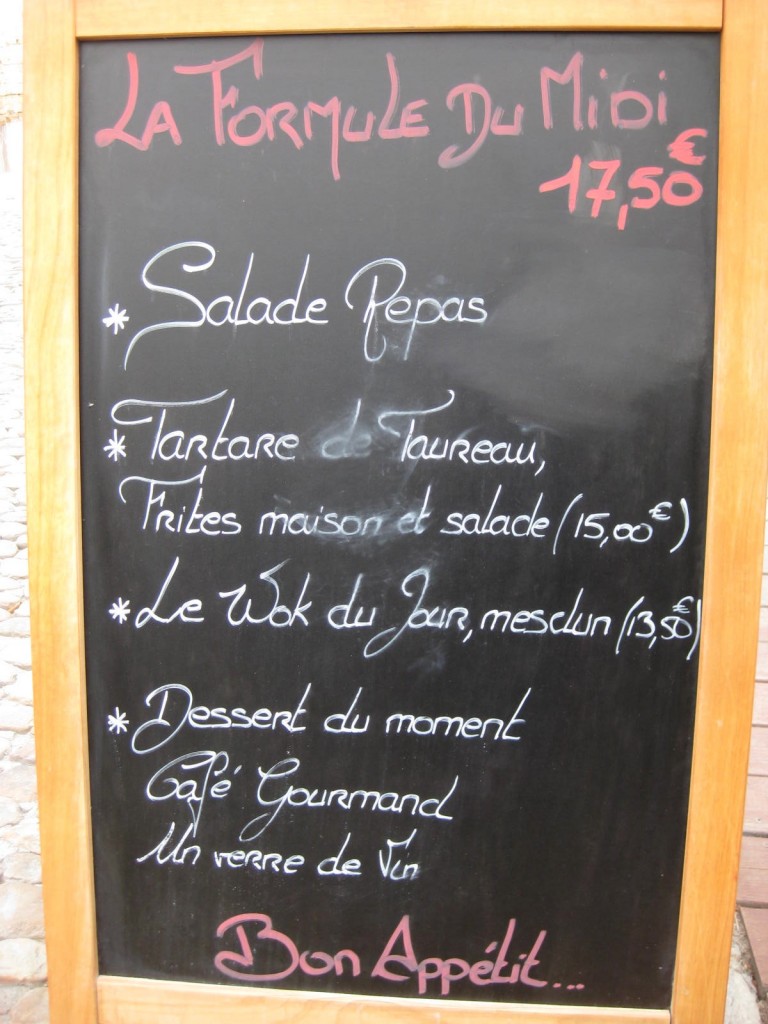 La Formule Du Midi
17,50€
* Salade Repas
* Tartare de Taureau,
Frites maison et salade (15,00€)
* Le Wok du Jour, mesclun (13,50€)
* Dessert du moment
Café Gourmand
Un verre de Vin
Bon Appétit...